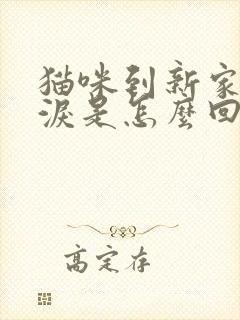 猫咪到新家
淚是怎麼回
高定存